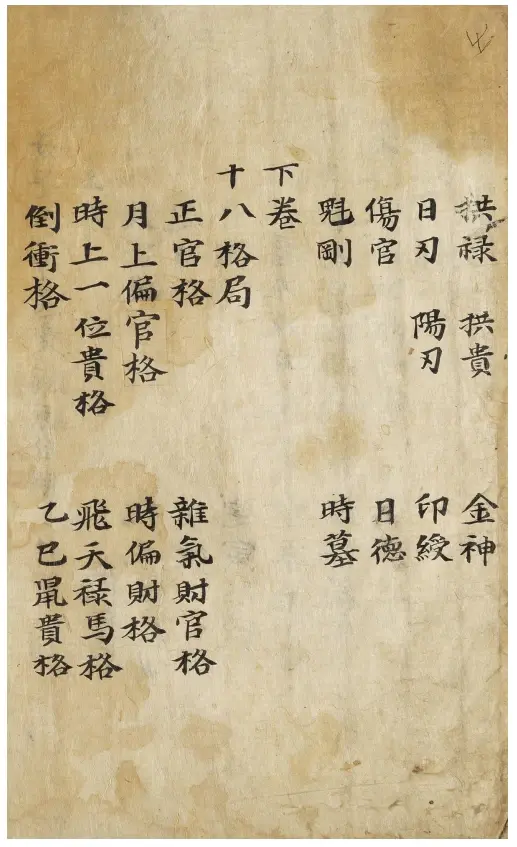 拱禄 拱貴 金神
日刃 陽刃 印綬
傷官 日德
魁剛 時墓
下卷
十八格局
正官格 雜氣財官格
月上偏官格 時偏財格
時上一位貴格 飛天禄馬格
倒衝格 乙巳鼠貴格